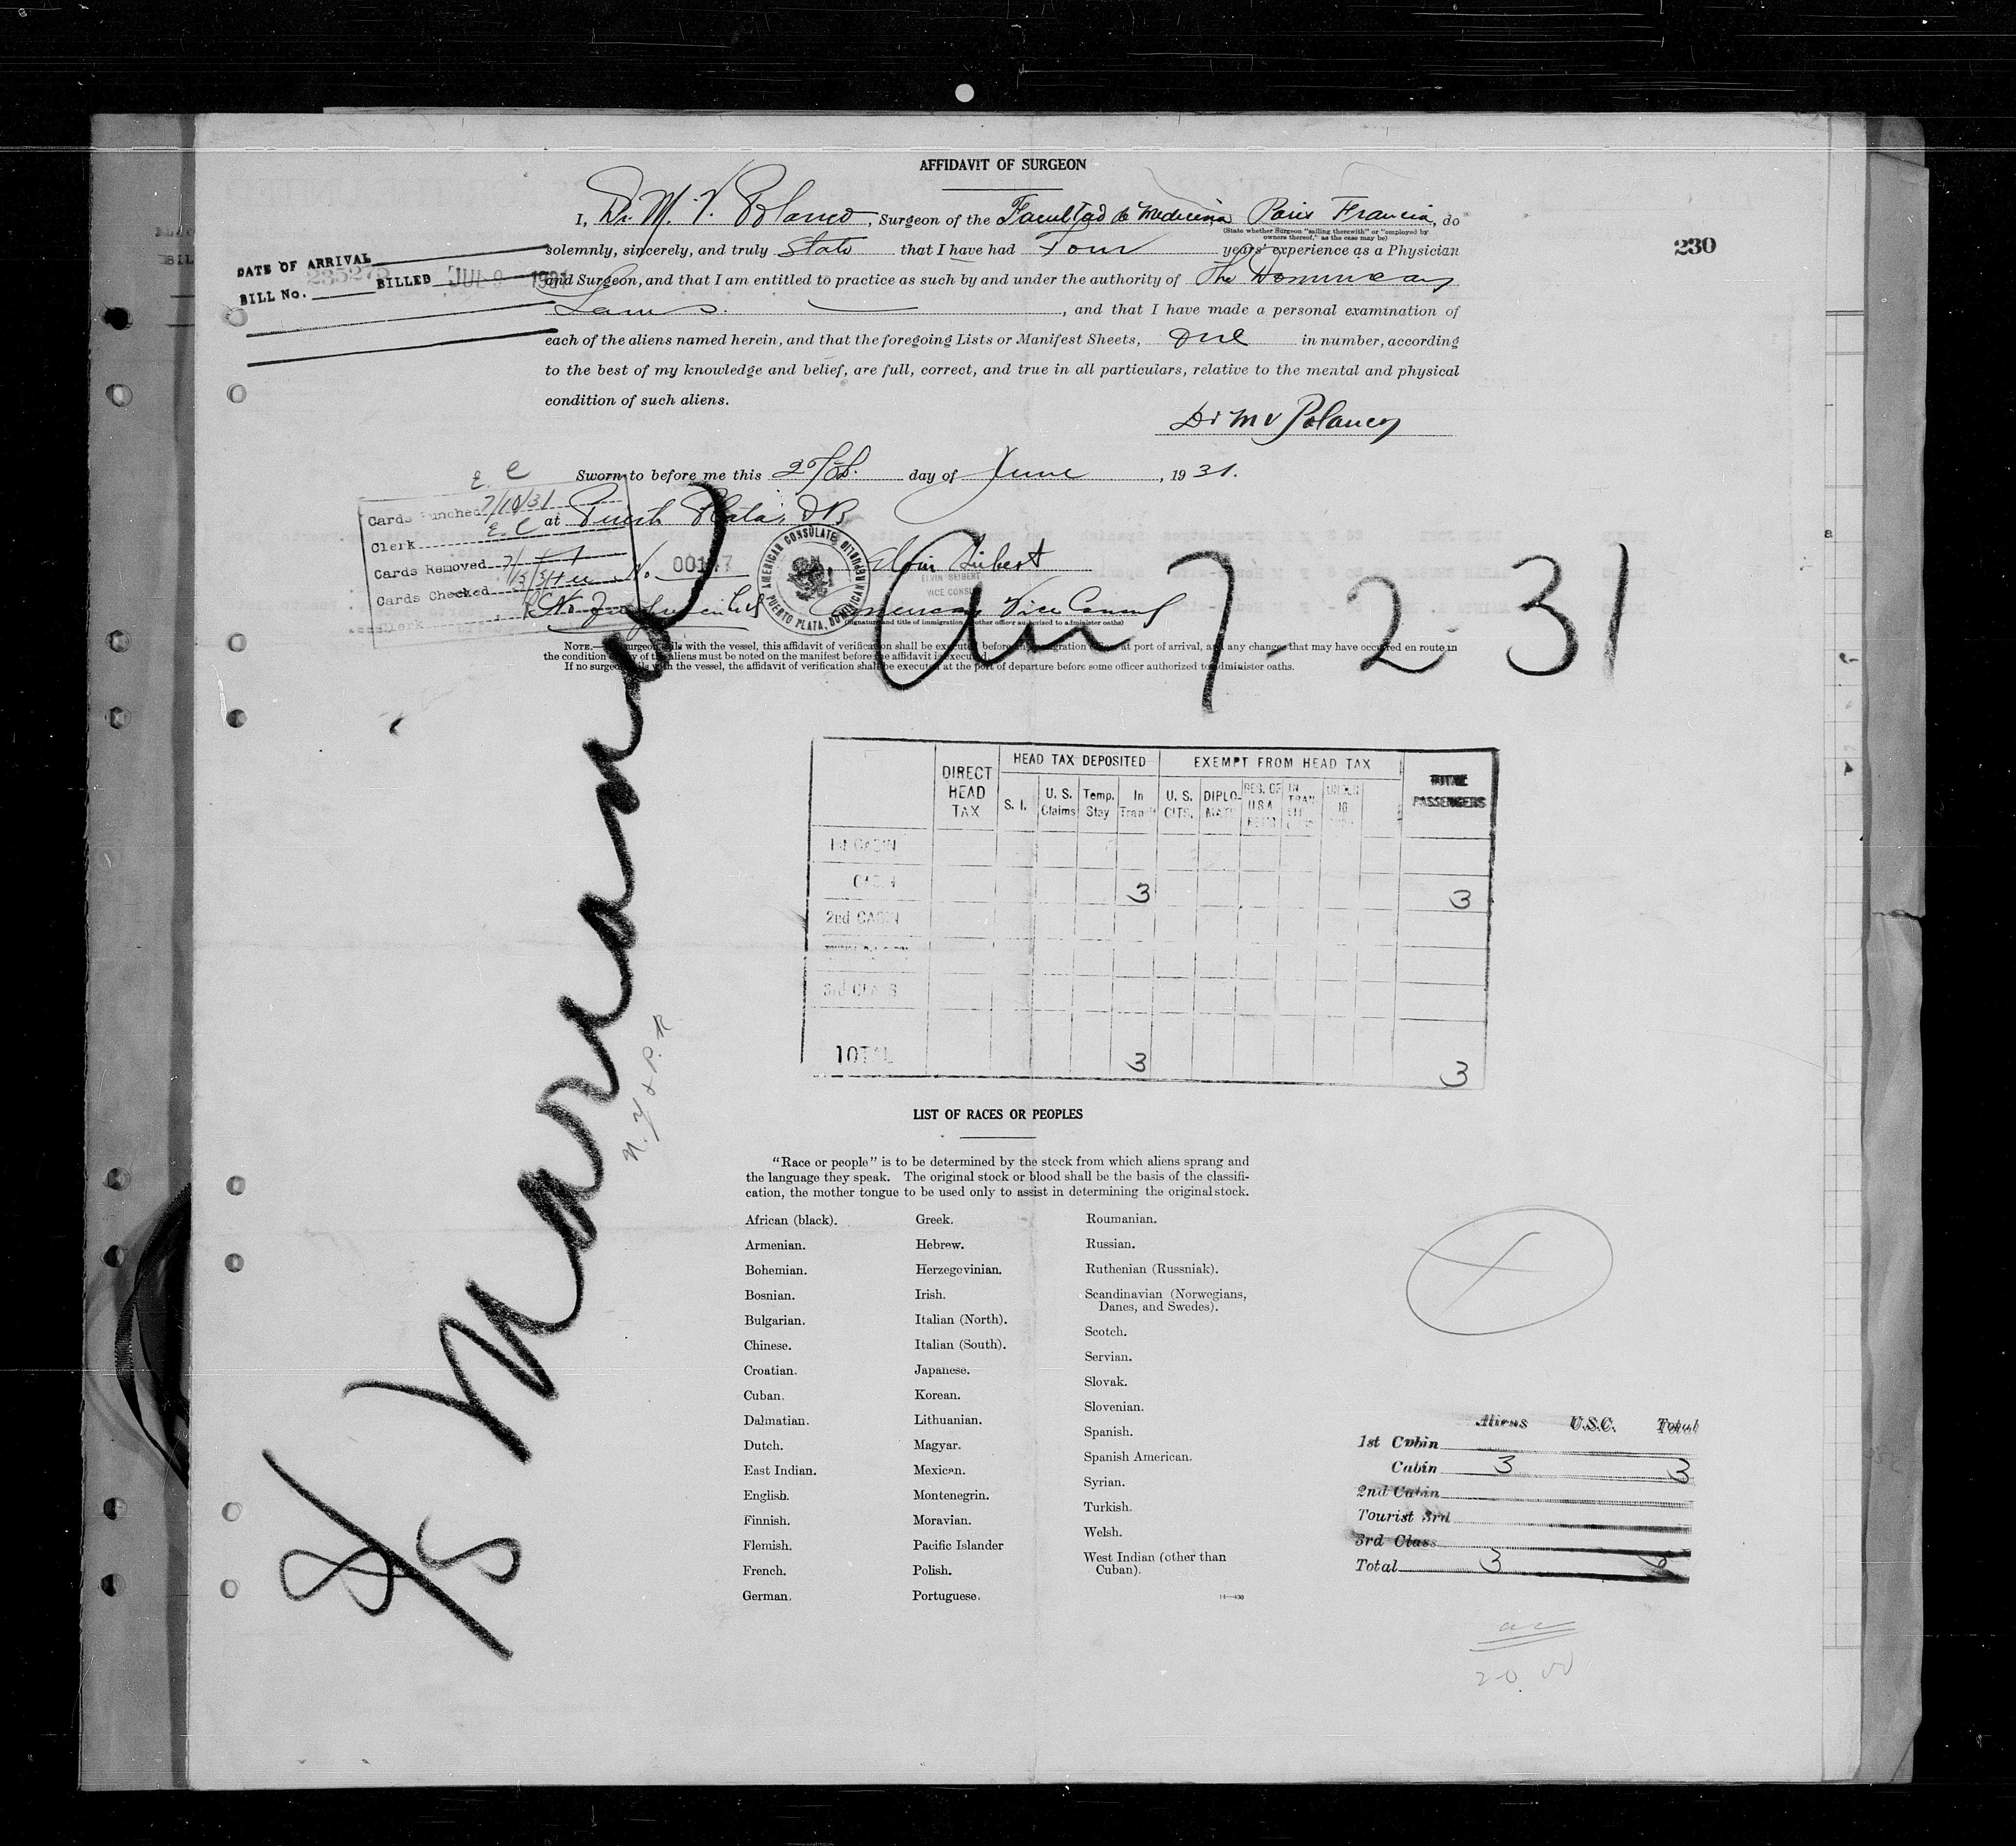 AFFIDAVIT OF SURGEON
I, Dr. M. V. Polanco, Surgeon of the Facultad de Medicina Paris Francia, do
(State whether Surgeon "sailing therewith" or "employed by
owners thereof," as the case may be)
solemnly, sincerely, and truly State that I have had Four years' experience as a Physician
and Surgeon, and that I am entitled to practice as such by and under the authority of The Dominican
Laws. , and that I have made a personal examination of
each of the aliens named herein, and that the foregoing Lists or Manifest Sheets, One in number, according
to the best of my knowledge and belief, are full, correct, and true in all particulars, relative to the mental and physical
condition of such aliens.
Dr M V Polanco
230
DATE OF ARRIVAL
235275
BILL No. BILLED JUL 9 1931
Sworn to before me this day of June, 19 31.
at Puerto Plata, D R
E. C
Cards Punched 7/10/31
Clerk E. C
Cards Removed
Cards Checked
Clerk
No. 00147
AMERICAN CONSULATE
PUERTO PLATA, DOMINICAN REPUBLIC
Elvin Seibert
ELVIN SEIBERT
VICE CONSUL
American Vice Consul
(Signature and title of immigration or other officer authorized to administer oaths)
NOTE.—If surgeon sails with the vessel, this affidavit of verification shall be executed before an immigration officer at port of arrival, and any changes that may have occurred en route in
the condition of any of the aliens must be noted on the manifest before the affidavit is executed.
If no surgeon sails with the vessel, the affidavit of verification shall be executed at the port of departure before some officer authorized to administer oaths.
Arr 7-2-31
S/S
N.Y & P.R
DIRECT HEAD TAX
HEAD TAX DEPOSITED
EXEMPT FROM HEAD TAX
TOTAL PASSENGERS
S. I. U. S. Claims Temp. Stay In Transit U. S. CITS. DIPLO-MATS RES. OF U S A IN TRAN-SIT UNDER 16
1st CABIN
CABIN 3 3
2nd CABIN
3rd CLASS
TOTAL 3 3
LIST OF RACES OR PEOPLES
"Race or people" is to be determined by the stock from which aliens sprang and
the language they speak. The original stock or blood shall be the basis of the classifi-
cation, the mother tongue to be used only to assist in determining the original stock.
African (black).
Armenian.
Bohemian.
Bosnian.
Bulgarian.
Chinese.
Croatian.
Cuban.
Dalmatian.
Dutch.
East Indian.
English.
Finnish.
Flemish.
French.
German.
Greek.
Hebrew.
Herzegovinian.
Irish.
Italian (North).
Italian (South).
Japanese.
Korean.
Lithuanian.
Magyar.
Mexican.
Montenegrin.
Moravian.
Pacific Islander
Polish.
Portuguese.
Roumanian.
Russian.
Ruthenian (Russniak).
Scandinavian (Norwegians,
Danes, and Swedes).
Scotch.
Servian.
Slovak.
Slovenian.
Spanish.
Spanish American.
Syrian.
Turkish.
Welsh.
West Indian (other than
Cuban).
14—430
Aliens U.S.C. Total
1st Cabin
Cabin 3 3
2nd Cabin
Tourist 3rd
3rd Class
Total 3 3
20.00